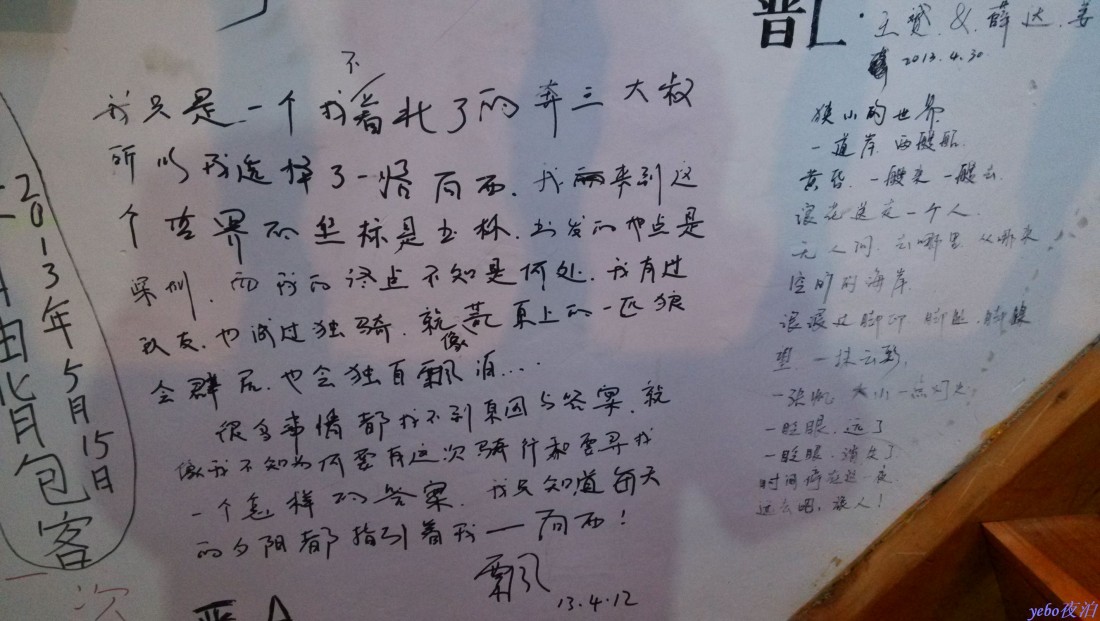 2013年5月15日
自由背包客
一次
不
我只是一个找着北了的奔三大叔
所以我选择了一路向西.我来到这
个世界的坐标是玉林.出发的地点是
深圳.而我的终点不知是何处.我有过
队友.也试过独骑.就像荒原上的一匹狼
会群居.也会独自飘泊...
很多事情都找不到原因与答案.就
像我不知为何要有这次骑行和要寻找
一个怎样的答案.我只知道每天
的夕阳都指引着我一向西!
飘
13.4.12
晋L.
王赟&薛达.姜
2013.4.30
狭小的世界
一道岸.两艘船.
黄昏.一艘来一艘去.
浪花送走一个人.
无人问.去哪里从哪来
空旷的海岸.
一抹云彩.
一眨眼.远了
一眨眼.消失了
晋A
yebo夜泊